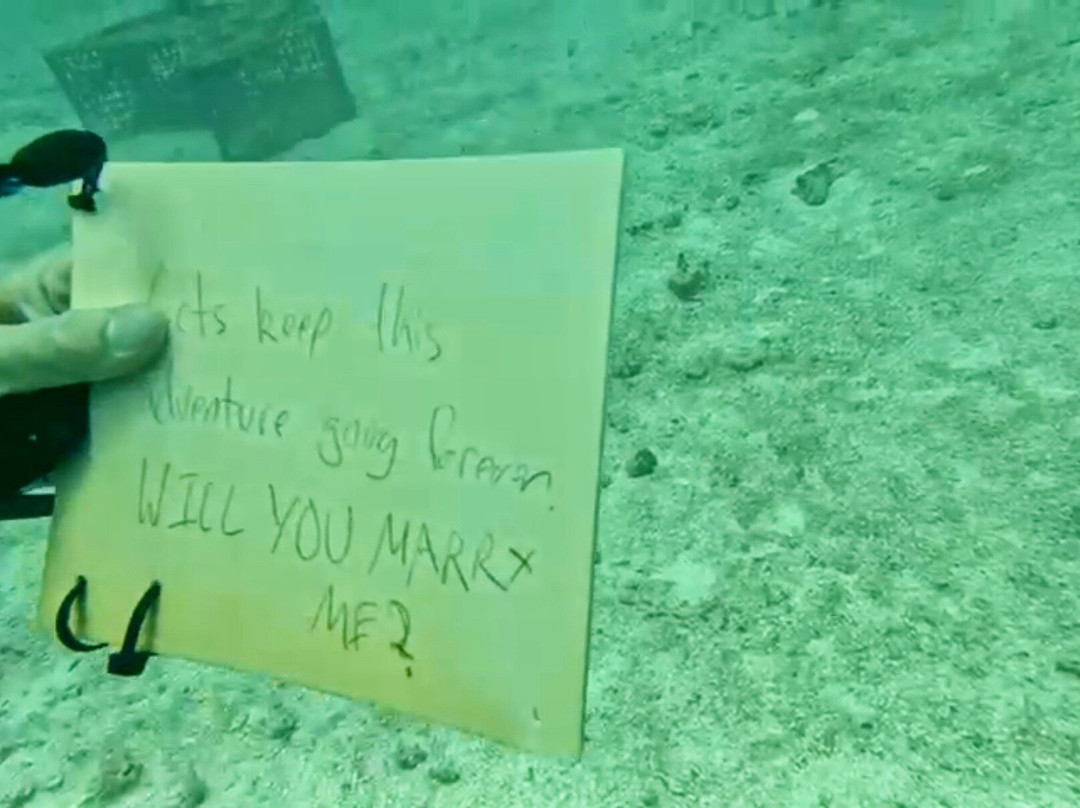 cts keep this
dventure going forever.
WILL YOU MARRY
ME?